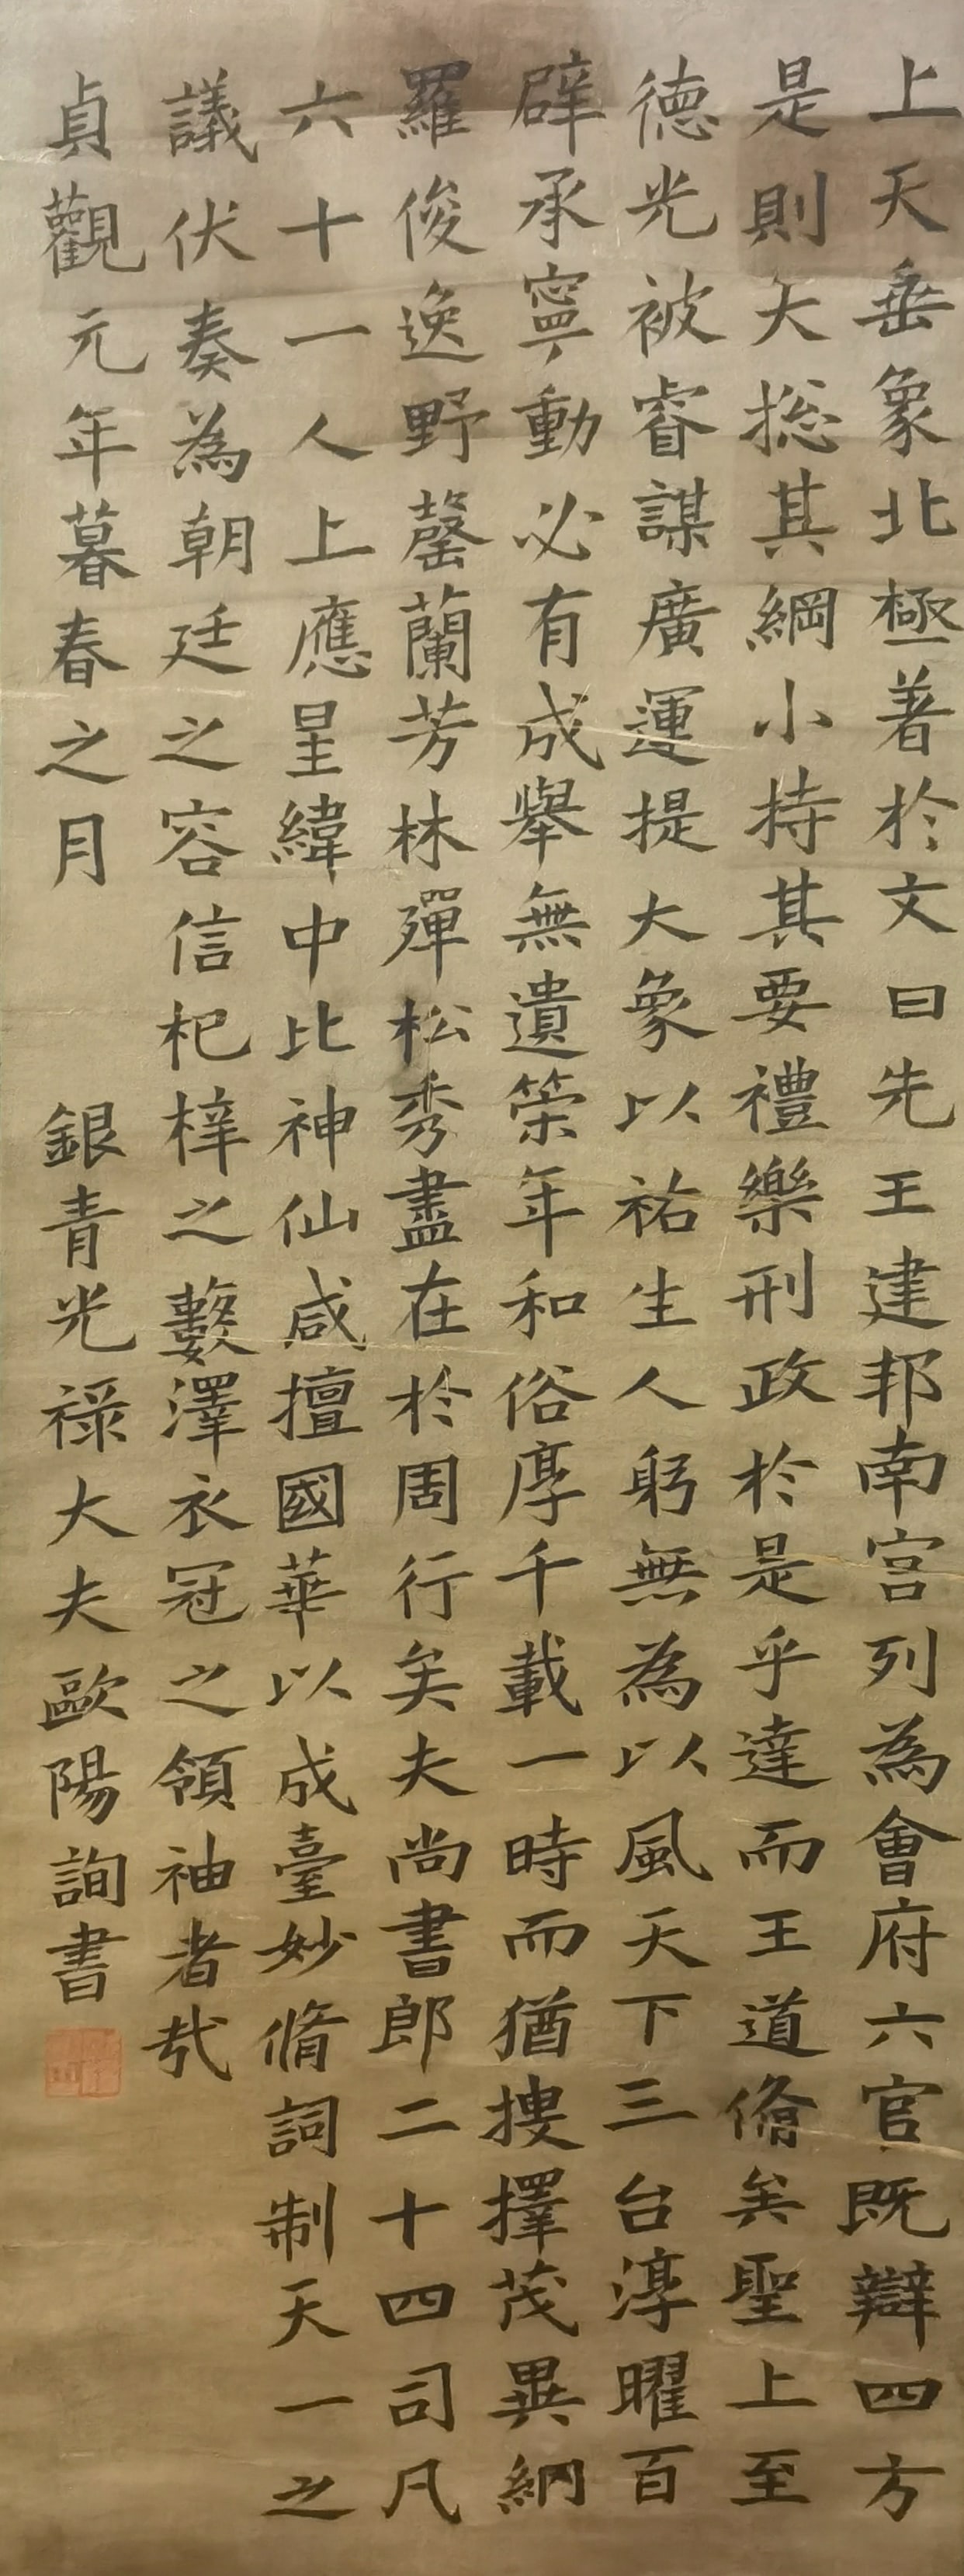 上天垂象北極著於文曰先王建邦南宮列為會府六官既辯四方
是則大揔其綱小持其要禮樂刑政於是乎達而王道脩矣聖上至
德光被睿謀廣運提大象以祐生人躬無為以風天下三台淳曜百
辟承寧動必有成舉無遺筞年和俗厚千載一時而猶搜擇茂異網
羅俊逸野罄蘭芳林殫松秀盡在於周行矣夫尚書郎二十四司凡
六十一人上應星緯中比神仙咸擅國華以成臺妙脩詞制天一之
議伏奏為朝廷之容信杞梓之藪澤衣冠之領袖者哉
貞觀元年暮春之月 銀青光祿大夫歐陽詢書